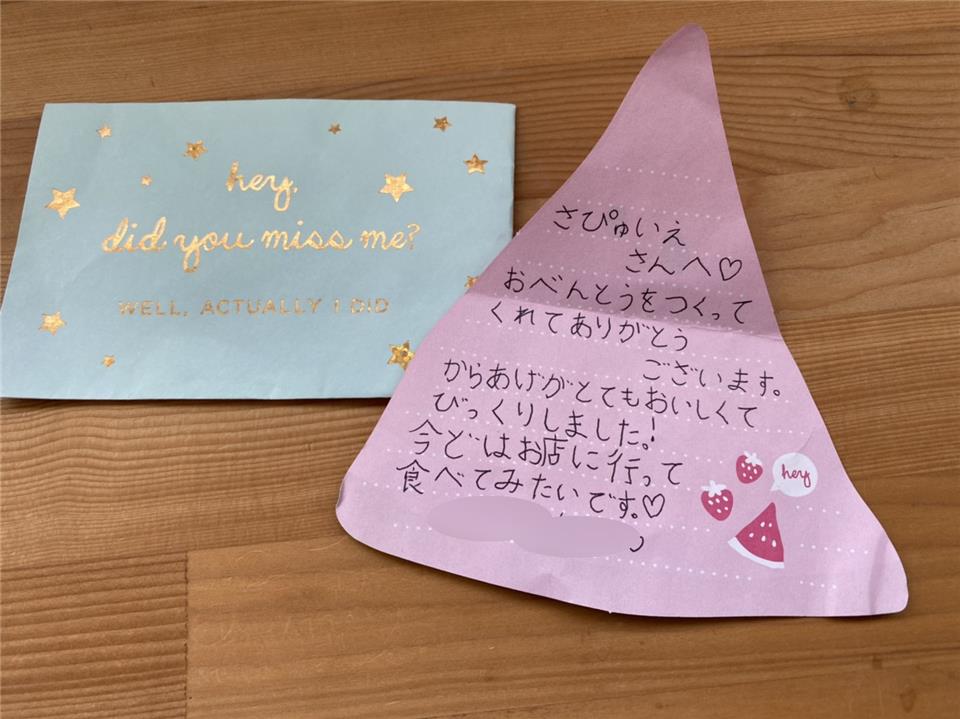 hey,
did you miss me?
WELL, ACTUALLY I DID
さぴゅいえ
さんへ♡
おべんとうをつくって
くれてありがとう
ございます。
からあげがとてもおいしくて
びっくりしました!
今どはお店に行って
食べてみたいです。♡
hey